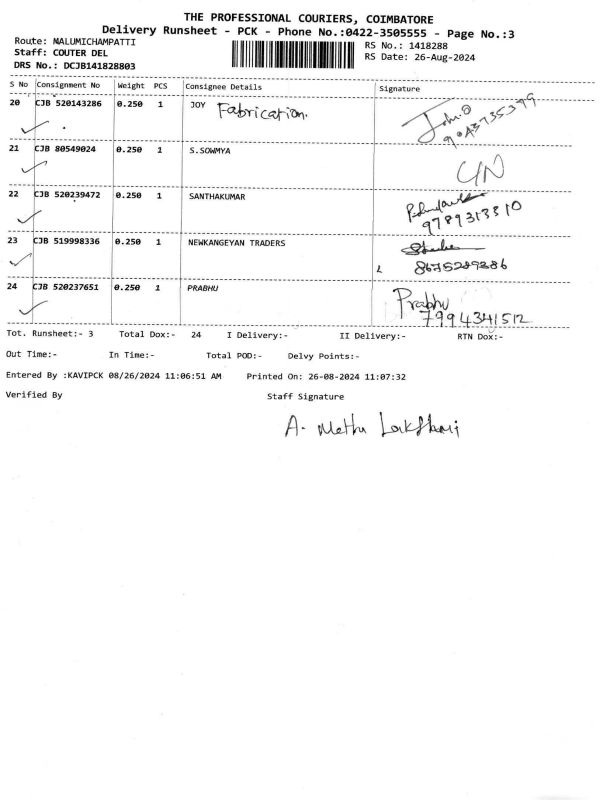 THE PROFESSIONAL COURIERS, COIMBATORE
Delivery Runsheet - PCK - Phone No.:0422-3505555 - Page No.:3
Route: MALUMICHAMPATTI
RS No.: 1418288
Staff: COUTER DEL
RS Date: 26-Aug-2024
DRS No.: DCJB141828803
S No Consignment No Weight PCS Consignee Details Signature
20 CJB 520143286 0.250 1 JOY Fabrication. John.
9043735399
21 CJB 80549024 0.250 1 S.SOWMYA
22 CJB 520239472 0.250 1 SANTHAKUMAR
9789313310
23 CJB 519998336 0.250 1 NEWKANGEYAN TRADERS
24 CJB 520237651 0.250 1 PRABHU Prabhu
7994341512
Tot. Runsheet:- 3 Total Dox:- 24 I Delivery:- II Delivery:- RTN Dox:-
Out Time:- In Time:- Total POD:- Delvy Points:-
Entered By :KAVIPCK 08/26/2024 11:06:51 AM Printed On: 26-08-2024 11:07:32
Verified By Staff Signature
A. Methu Lakshmi